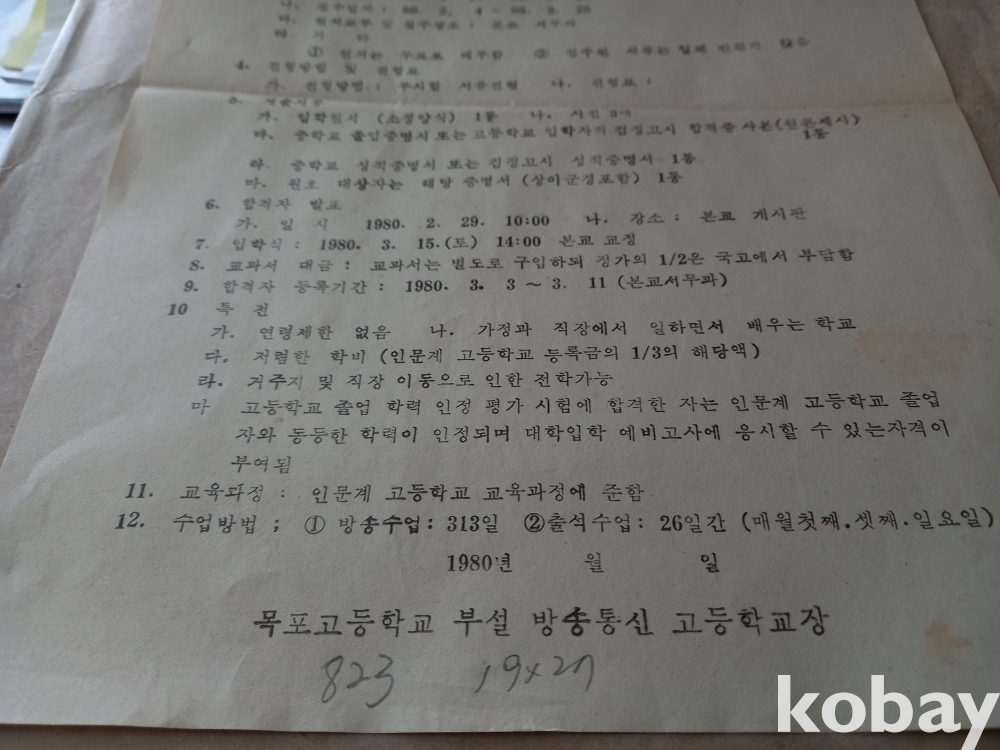 다. 원서교부 및 접수장소 : 본교 서무과
라. 기 타
① 원서는 무료로 배부함 ② 접수된 서류는 일체 반환치 않음
4. 전형방법 및 전형료
가. 전형방법 : 무시험 서류전형 나. 전형료 :
5. 제출서류
가. 입학원서 (소정양식) 1통 나. 사진 3매
다. 중학교 졸업증명서 또는 고등학교 입학자격 검정고시 합격증 사본(원본제시) 1통
라. 중학교 성적증명서 또는 검정고시 성적증명서 1통
마. 원호 대상자는 해당 증명서 (상이군경포함) 1통
6. 합격자 발표
가. 일 시 1980. 2. 29. 10:00 나. 장소 : 본교 게시판
7. 입학식 : 1980. 3. 15.(토) 14:00 본교 교정
8. 교과서 대금 : 교과서는 별도로 구입하되 정가의 1/2은 국고에서 부담함
9. 합격자 등록기간 : 1980. 3. 3 ~ 3. 11 (본교서무과)
10 특 전
가. 연령제한 없음 나. 가정과 직장에서 일하면서 배우는 학교
다. 저렴한 학비 (인문계 고등학교 등록금의 1/3의 해당액)
라. 거주지 및 직장 이동으로 인한 전학가능
마 고등학교 졸업 학력 인정 평가 시험에 합격한 자는 인문계 고등학교 졸업
자와 동등한 학력이 인정되며 대학입학 예비고사에 응시할 수 있는자격이
부여됨
11. 교육과정 : 인문계 고등학교 교육과정에 준함
12. 수업방법 ; ① 방송수업 : 313일 ②출석수업 : 26일간 (매월첫째.셋째.일요일)
1980년 월 일
목포고등학교 부설 방송통신 고등학교장
823 19x27
kobay